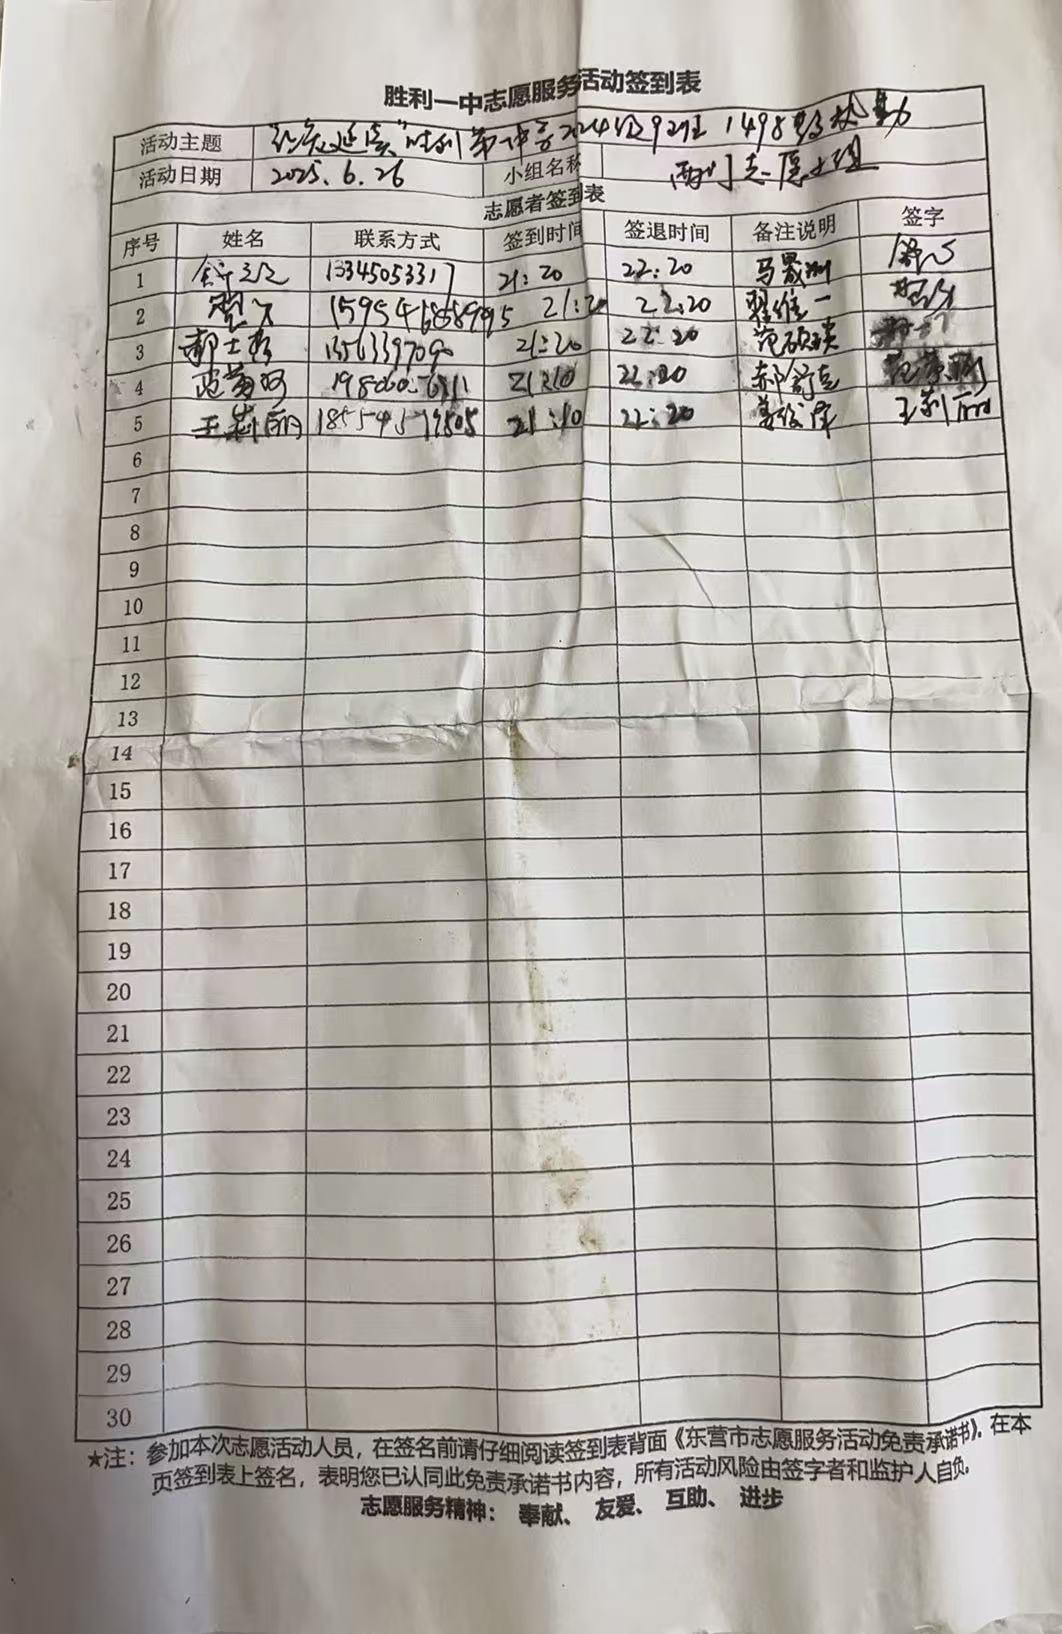 胜利一中志愿服务活动签到表
活动主题 2024级 1498
活动日期 2025.6.26 小组名称 志愿小组
志愿者签到表
序号 姓名 联系方式 签到时间 签退时间 备注说明 签字
1 13345053317 21:20 22:20 马晟洲
2 21:20 22:20 翟维一
3 郝士彬 21:20 22:20 范硕瑛
4 21:10 22:20 郝舒克
5 王莉丽 21:10 22:20 王莉丽
6
7
8
9
10
11
12
13
14
15
16
17
18
19
20
21
22
23
24
25
26
27
28
29
30
★注：参加本次志愿活动人员，在签名前请仔细阅读签到表背面《东营市志愿服务活动免责承诺书》。在本
页签到表上签名，表明您已认同此免责承诺书内容，所有活动风险由签字者和监护人自负。
志愿服务精神： 奉献、 友爱、 互助、 进步